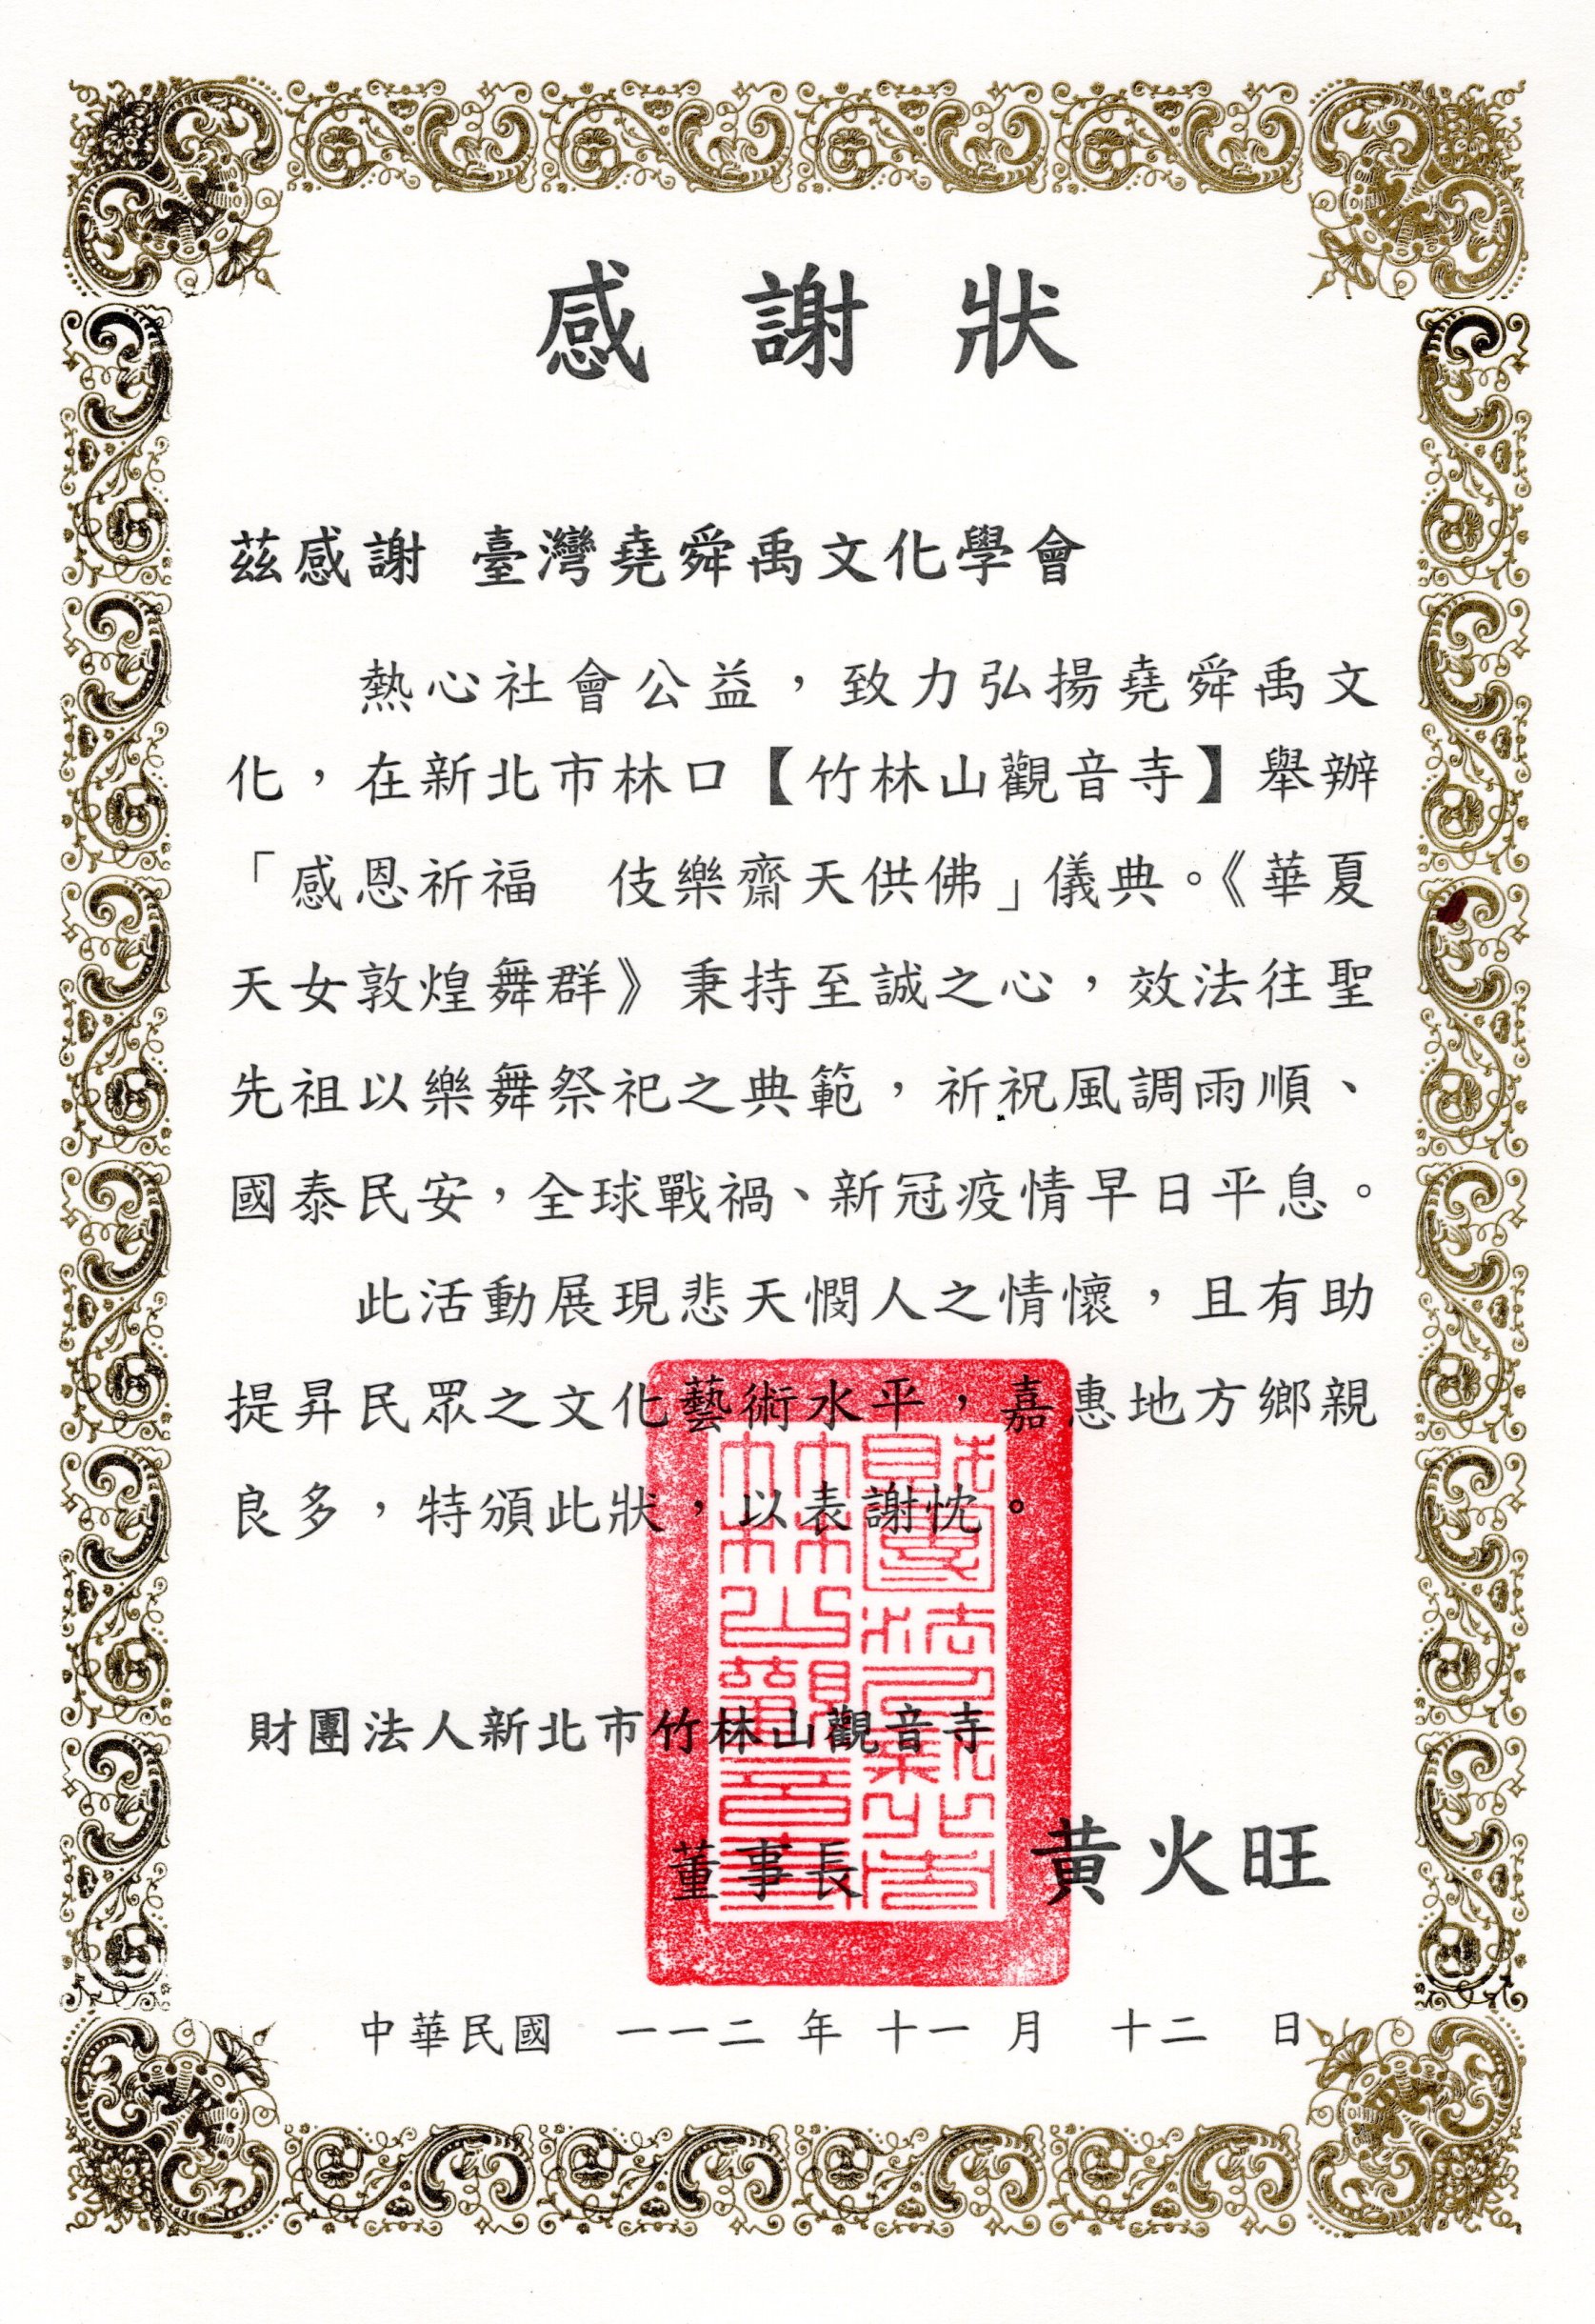 感謝狀
茲感謝 臺灣堯舜禹文化學會
熱心社會公益，致力弘揚堯舜禹文
化，在新北市林口【竹林山觀音寺】舉辦
「感恩祈福　伎樂齋天供佛」儀典。《華夏
天女敦煌舞群》秉持至誠之心，效法往聖
先祖以樂舞祭祀之典範，祈祝風調雨順、
國泰民安，全球戰禍、新冠疫情早日平息。
此活動展現悲天憫人之情懷，且有助
提昇民眾之文化藝術水平，嘉惠地方鄉親
良多，特頒此狀，以表謝忱。
財團法人新北市竹林山觀音寺
董事長 黃火旺
中華民國 一一二 年 十一 月 十二 日
財團法人臺北市
竹林山觀音寺